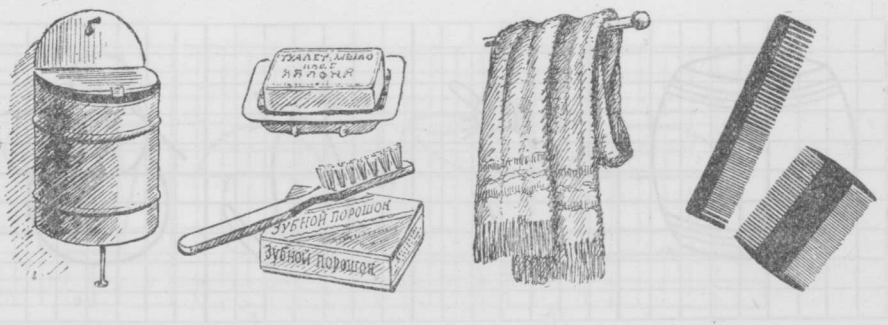 ТУАЛЕТ. МЫЛО
ЯБЛОНЯ
ЗУБНОЙ ПОРОШОК
Зубной порошок